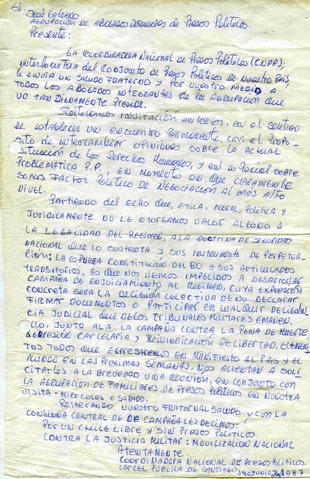 SR. José Galiano
AGRUPACIÓN DE ABOGADOS DEFENSORES DE PRESOS POLÍTICOS.
Presente:
LA COORDINADORA NACIONAL DE PRESOS POLÍTICOS (CNPP),
INTERLOCUTORA DEL CONJUNTO DE PRESOS POLÍTICOS DE NUESTRO PAÍS
LE ENVÍA UN SALUDO FRATERNO Y POR VUESTRO MEDIO A
TODOS LOS ABOGADOS INTEGRANTES DE LA AGRUPACIÓN QUE
UD. TAN DIGNAMENTE PRESIDE.
REITERAMOS INVITACIÓN ANTERIOR, EN EL SENTIDO
DE ESTABLECER UN ENCUENTRO PERMANENTE CON EL PROPÓ-
SITO DE INTERCAMBIAR OPINIONES SOBRE LA ACTUAL
SITUACIÓN DE LOS DERECHOS HUMANOS, Y EN LO PARTICULAR SOBRE
PROBLEMÁTICA P.P., EN MOMENTOS EN QUE CLARAMENTE
SOMOS FACTOR POLÍTICO DE NEGOCIACIÓN AL MÁS ALTO
NIVEL.
PARTIENDO DEL ECHO QUE, ETICA, MORAL, POLÍTICA Y
JURÍDICAMENTE NO LE OTORGAMOS VALOR ALGUNO A
LA LEGALIDAD DEL RÉGIMEN, A LA DOCTRINA DE SEGURIDAD
NACIONAL QUE LO SUSTENTA Y SUS INTENTOS DE PERPETUA-
CIÓN: LA CONSTITUCIÓN DEL 80 Y SUS ARTICULADOS
TRANSITORIOS, ES QUE NOS VEMOS IMPELIDOS A DESARROLLAR
CAMPAÑA DE ENJUICIAMIENTO AL RÉGIMEN, CUYA EXPRESIÓN
CONCRETA SERÁ LA DECISIÓN COLECTIVA DE NO DECLARAR,
FIRMAR DOCUMENTOS O PARTICIPAR EN CUALQUIER DILIGEN-
CIA JUDICIAL QUE DE LOS TRIBUNALES MILITARES EMANEN.
JUNTO A LA CAMPAÑA CONTRA LA PENA DE MUERTE
REPRESIÓN CARCELARIA Y REIVINDICACIÓN DE LIBERTAD,
TOS TODOS QUE EXPRESAREMOS EN MANIFIESTO AL PAÍS Y EL
MUNDO EN LAS PRÓXIMAS SEMANAS, NOS ALIENTAN A SOLI-
CITARLES A LA BREVEDAD UNA REUNIÓN, EN CONJUNTO CON
LA AGRUPACIÓN DE FAMILIARES DE PRESOS POLÍTICOS EN NUESTRA
VISITA: MIÉRCOLES O SÁBADO.
REITERANDO NUESTRO FRATERNAL SALUDO Y CON LA
CONSIGNA CENTRAL DE LA CAMPAÑA LES DECIMOS:
POR UN CHILE LIBRE Y SIN PRESOS POLÍTICOS
CONTRA LA JUSTICIA MILITAR: MOVILIZACIÓN NACIONAL
ATENTAMENTE
COORDINADORA NACIONAL DE PRESOS POLÍTICOS
CÁRCEL PÚBLICA DE SANTIAGO JUNIO 1987